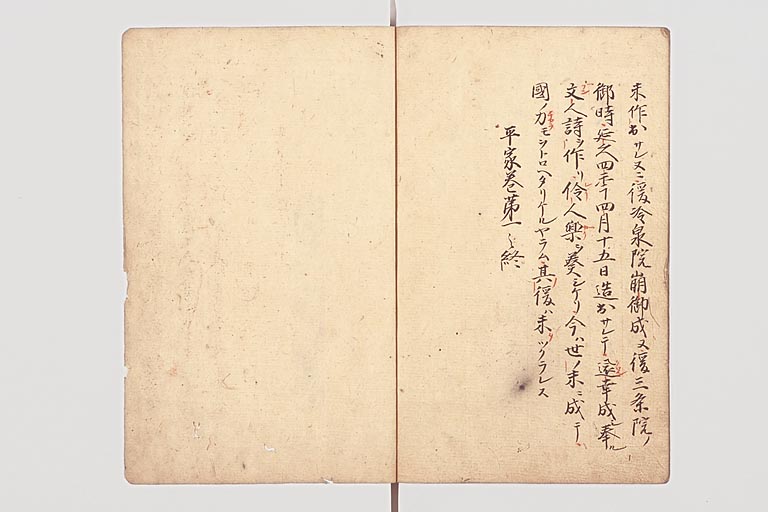 未作出サレヌニ後冷泉院崩御成ヌ後三条院ノ
御時延久四年四月十五日造出サレテ還幸成奉ル
文人詩ヲ作リ伶人樂ヲ奏シケリ今ハ世ノ末ニ成テ
國ノ力モヲトロヘタリケルヤラム其後ハ未ツクラレス
平家巻第一之終